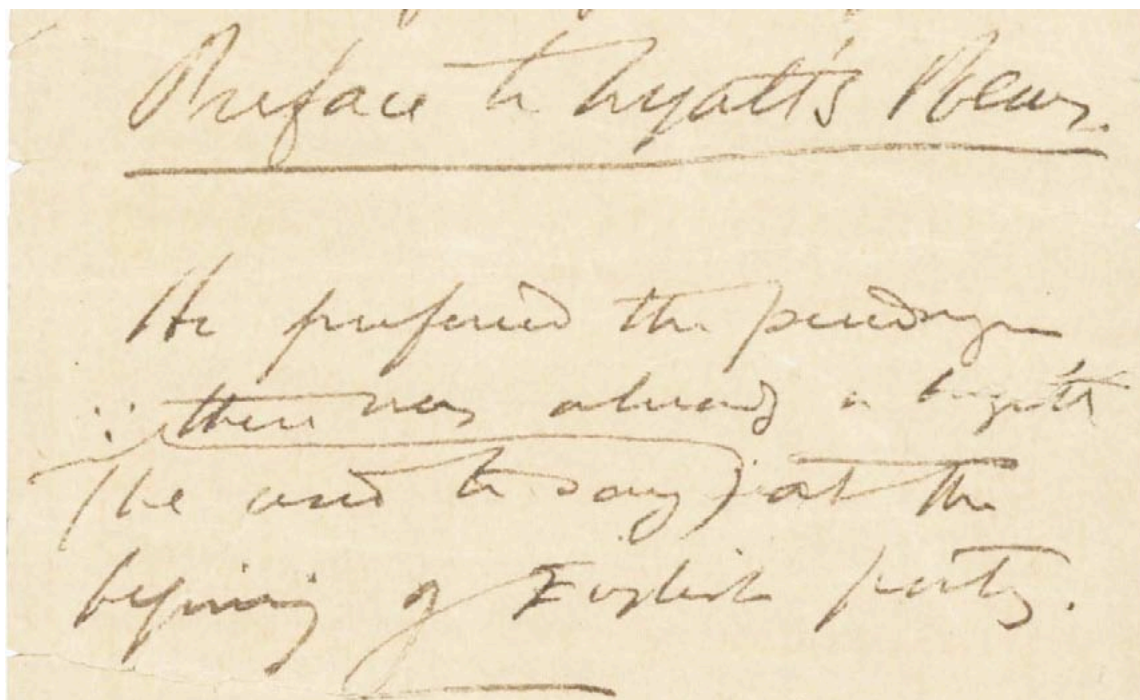 Preface to Wyatt's Poems.
He preferred the pseudonym
∵ there was already a Wyatt
(he used to say) at the
beginning of English poetry.